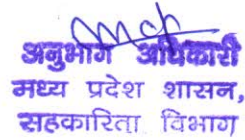 अनुभाग अधिकारी
मध्य प्रदेश शासन,
सहकारिता विभाग